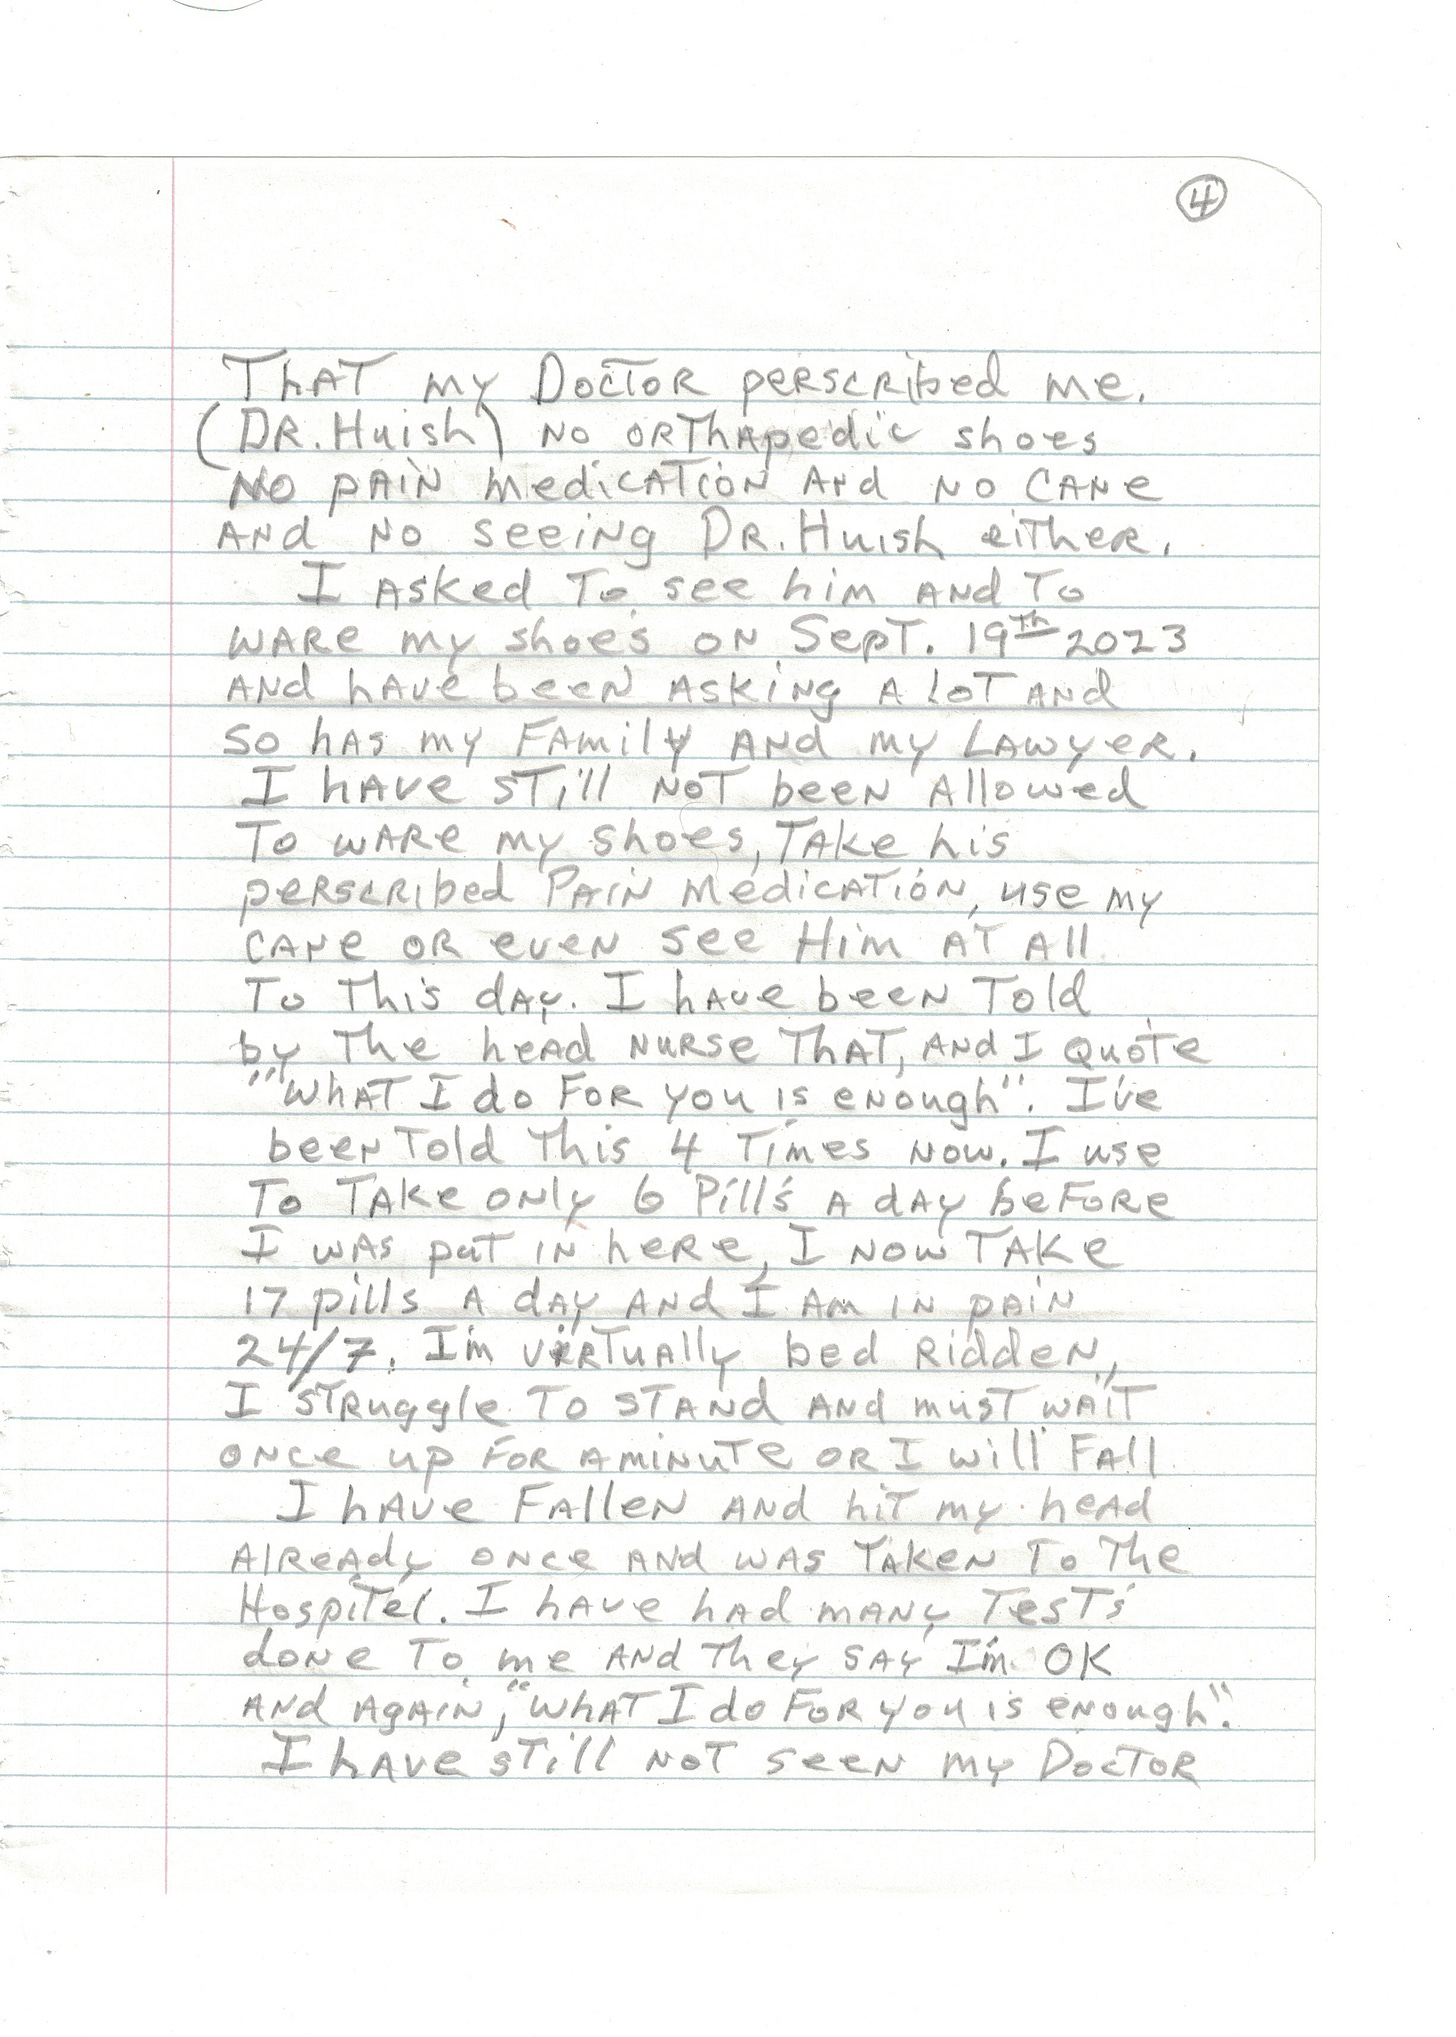 4
That my Doctor perscribed me.
(DR. Huish) No orthapedic shoes
No pain medication and no cane
and no seeing DR. Huish either.
I asked to see him and to
ware my shoes on Sept. 19th 2023
and have been asking a lot and
so has my family and my lawyer.
I have still not been allowed
to ware my shoes, take his
perscribed pain medication, use my
cane or even see Him at all
to this day. I have been told
by the head nurse that, and I quote
"what I do for you is enough". I've
been told this 4 times now. I use
to take only 6 pills a day before
I was put in here, I now take
17 pills a day and I am in pain
24/7. I'm virtually bed ridden,
I struggle to stand and must wait
once up for a minute or I will fall
I have fallen and hit my head
already once and was taken to the
Hospitel. I have had many tests
done to me and they say I'm OK
and again, "what I do for you is enough".
I have still not seen my Doctor